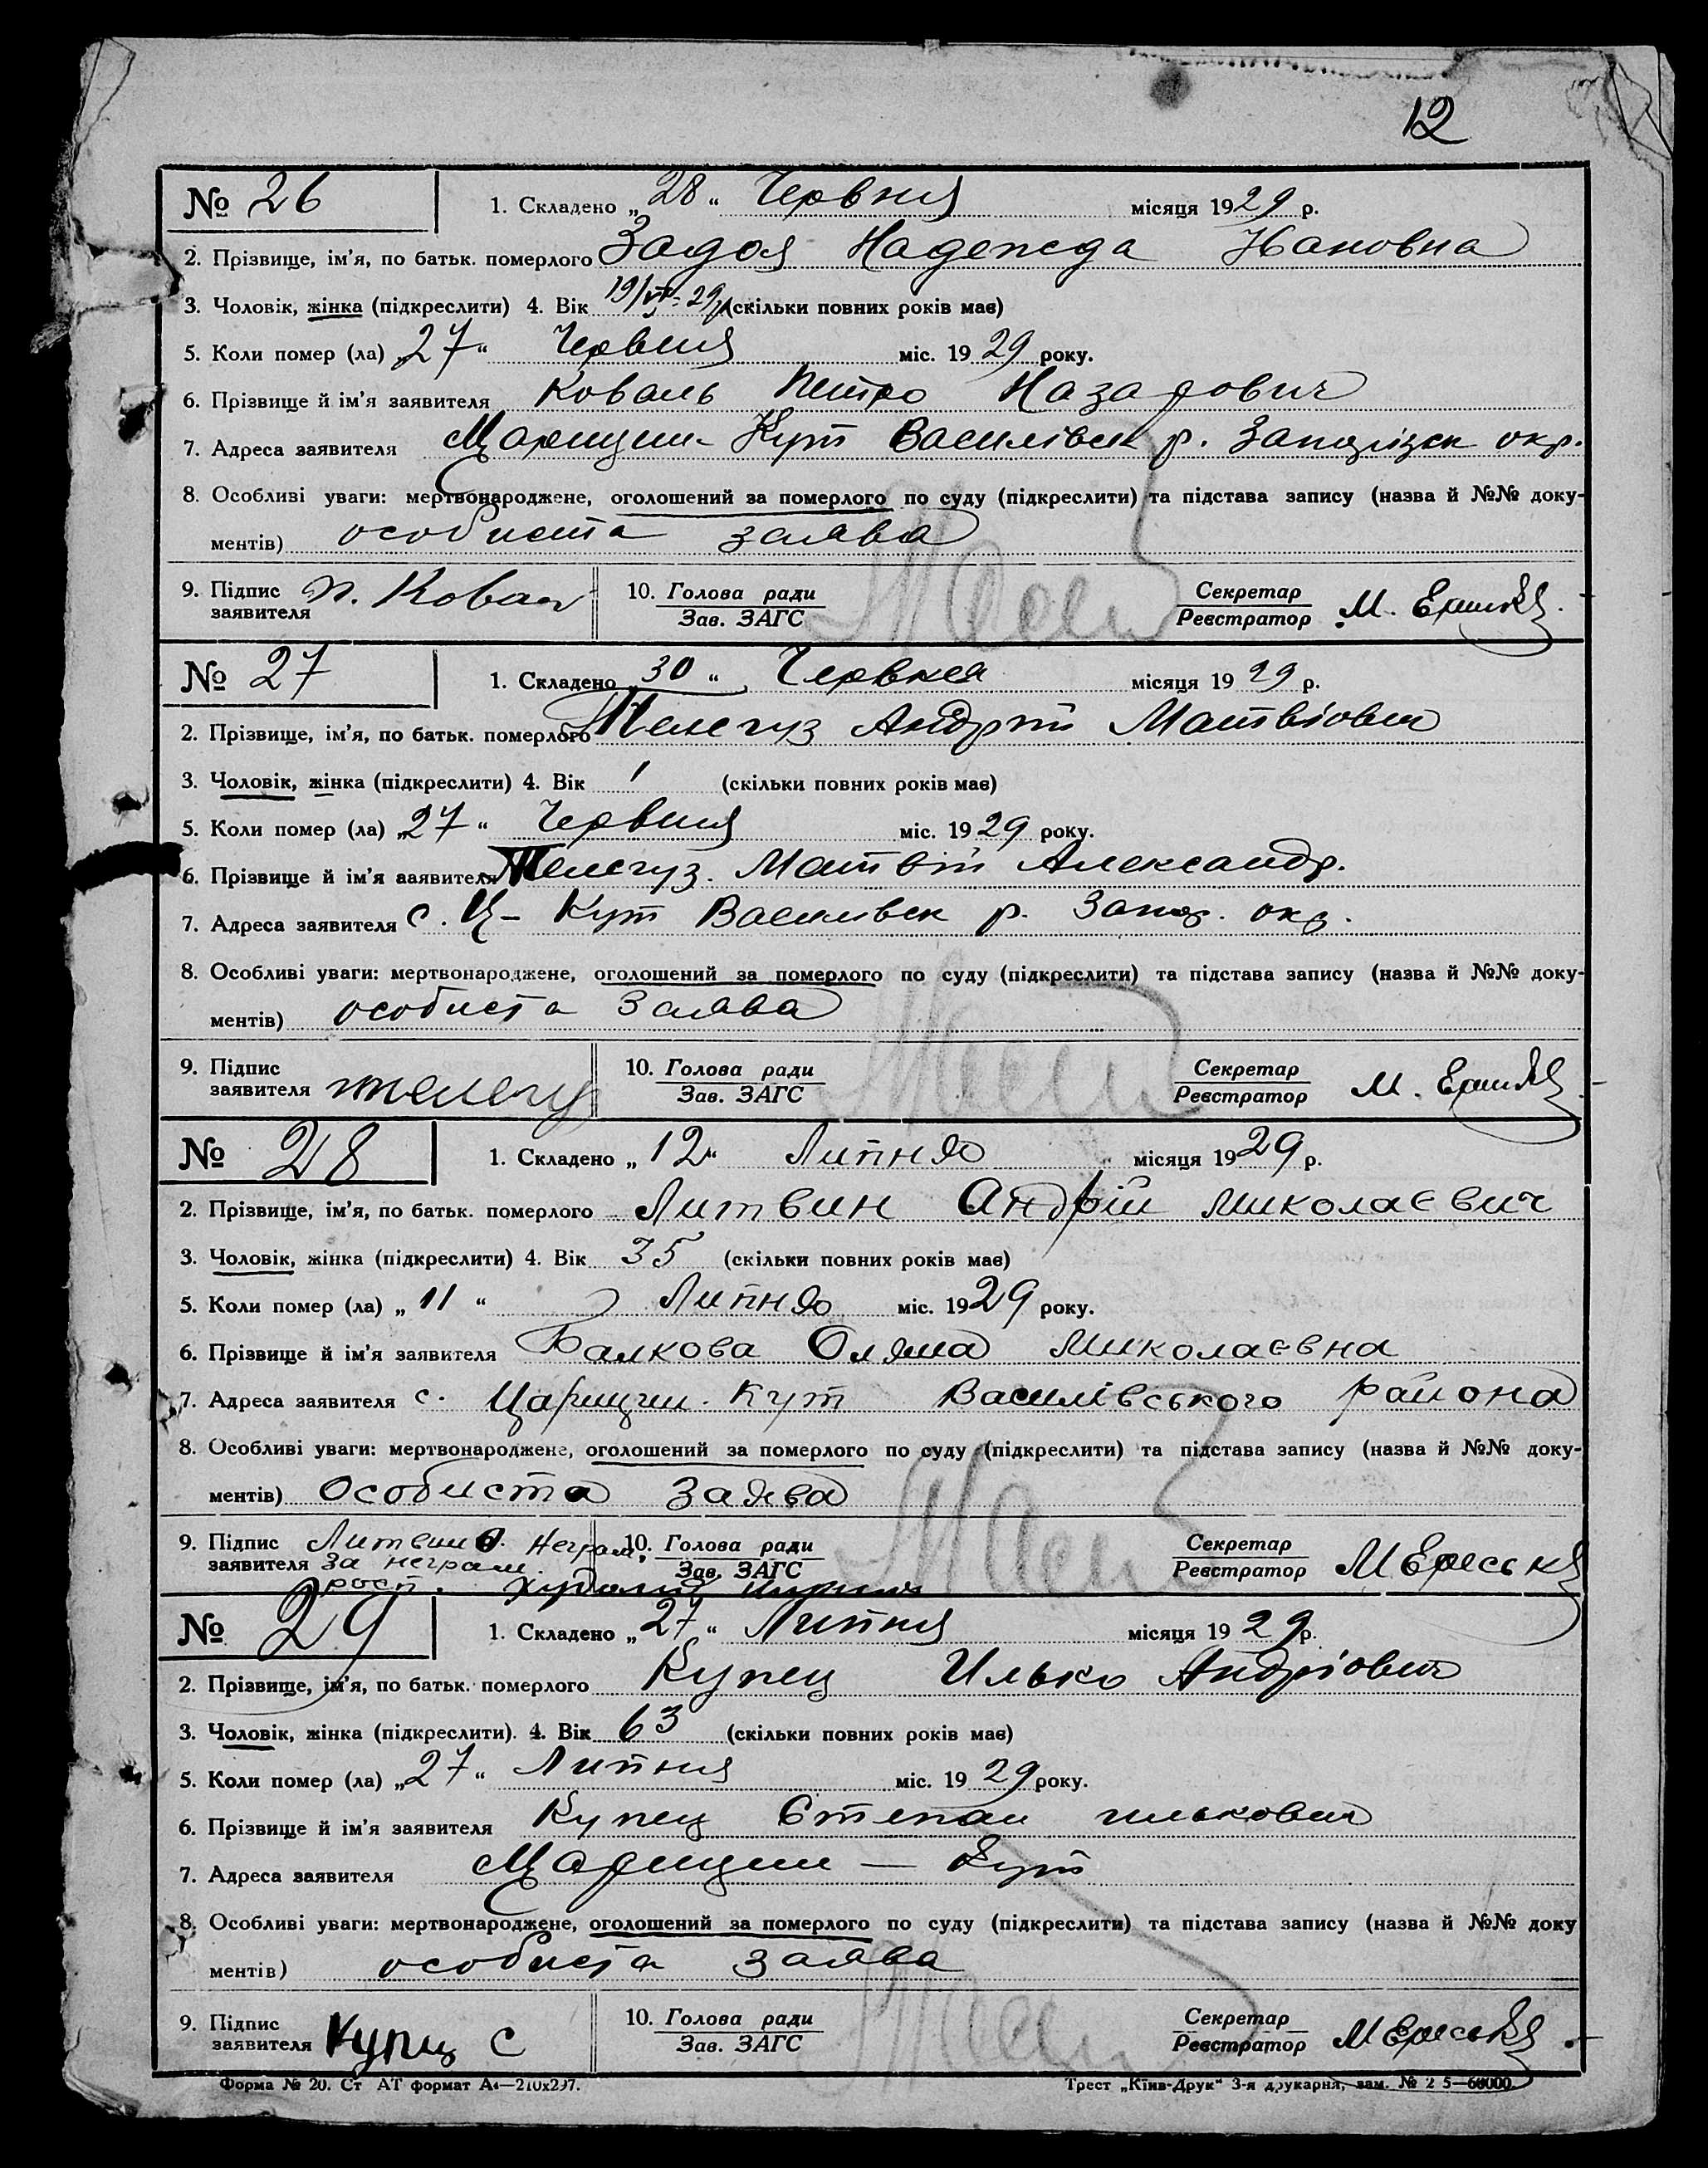 12
№ 26 1. Складено „28“ Червня місяця 1929 р.
2. Прізвище, ім'я, по батьк. померлого Задоя Надежда Ивановна
3. Чоловік, жінка (підкреслити) 4. Вік 19/VI-29р (скільки повних років має)
5. Коли помер (ла) „27“ Червня міс. 1929 року.
6. Прізвище й ім'я заявителя Коваль Петро Назарович
7. Адреса заявителя Царицин-Кут Василівськ р. Запорізск окр.
8. Особливі уваги: мертвонароджене, оголошений за померлого по суду (підкреслити) та підстава запису (назва й №№ доку-
ментів) особиста заява
9. Підпис заявителя П. Ковал 10. Голова ради Зав. ЗАГС Секретар Реєстратор М.
№ 27 1. Складено „30“ Червня місяця 1929 р.
2. Прізвище, ім'я, по батьк. померлого Телегуз Андрій Матвіович
3. Чоловік, жінка (підкреслити) 4. Вік 1 (скільки повних років має)
5. Коли помер (ла) „27“ Червня міс. 1929 року.
6. Прізвище й ім'я заявителя Телегуз. Матвій Александр.
7. Адреса заявителя с. Ц-Кут Василівск р. Запор. окр.
8. Особливі уваги: мертвонароджене, оголошений за померлого по суду (підкреслити) та підстава запису (назва й №№ доку-
ментів) особиста заява
9. Підпис заявителя телегуз 10. Голова ради Зав. ЗАГС Секретар Реєстратор М.
№ 28 1. Складено „12“ Липня місяця 1929 р.
2. Прізвище, ім'я, по батьк. померлого Литвин Андрій Миколаєвич
3. Чоловік, жінка (підкреслити) 4. Вік 35 (скільки повних років має)
5. Коли помер (ла) „11“ Липня міс. 1929 року.
6. Прізвище й ім'я заявителя Балкова Миколаєвна
7. Адреса заявителя с. Царицин-Кут Василівського района
8. Особливі уваги: мертвонароджене, оголошений за померлого по суду (підкреслити) та підстава запису (назва й №№ доку-
ментів) Особиста заява
9. Підпис заявителя Литвин О. Неграм. 10. Голова ради Зав. ЗАГС Секретар Реєстратор М
за неграм.
росп.
№ 29 1. Складено „27“ Липня місяця 1929 р.
2. Прізвище, ім'я, по батьк. померлого Купец Илько Андріович
3. Чоловік, жінка (підкреслити). 4. Вік 63 (скільки повних років має)
5. Коли помер (ла) „27“ Липня міс. 1929 року.
6. Прізвище й ім'я заявителя Купец Степан илькович
7. Адреса заявителя Царицин — Кут
8. Особливі уваги: мертвонароджене, оголошений за померлого по суду (підкреслити) та підстава запису (назва й №№ доку
ментів) особиста заява
9. Підпис заявителя Купец С 10. Голова ради Зав. ЗАГС Секретар Реєстратор М
Форма № 20. Ст АТ формат А4—210х297. Трест „Київ-Друк“ 3-я друкарня, зам. № 2 5—60000.